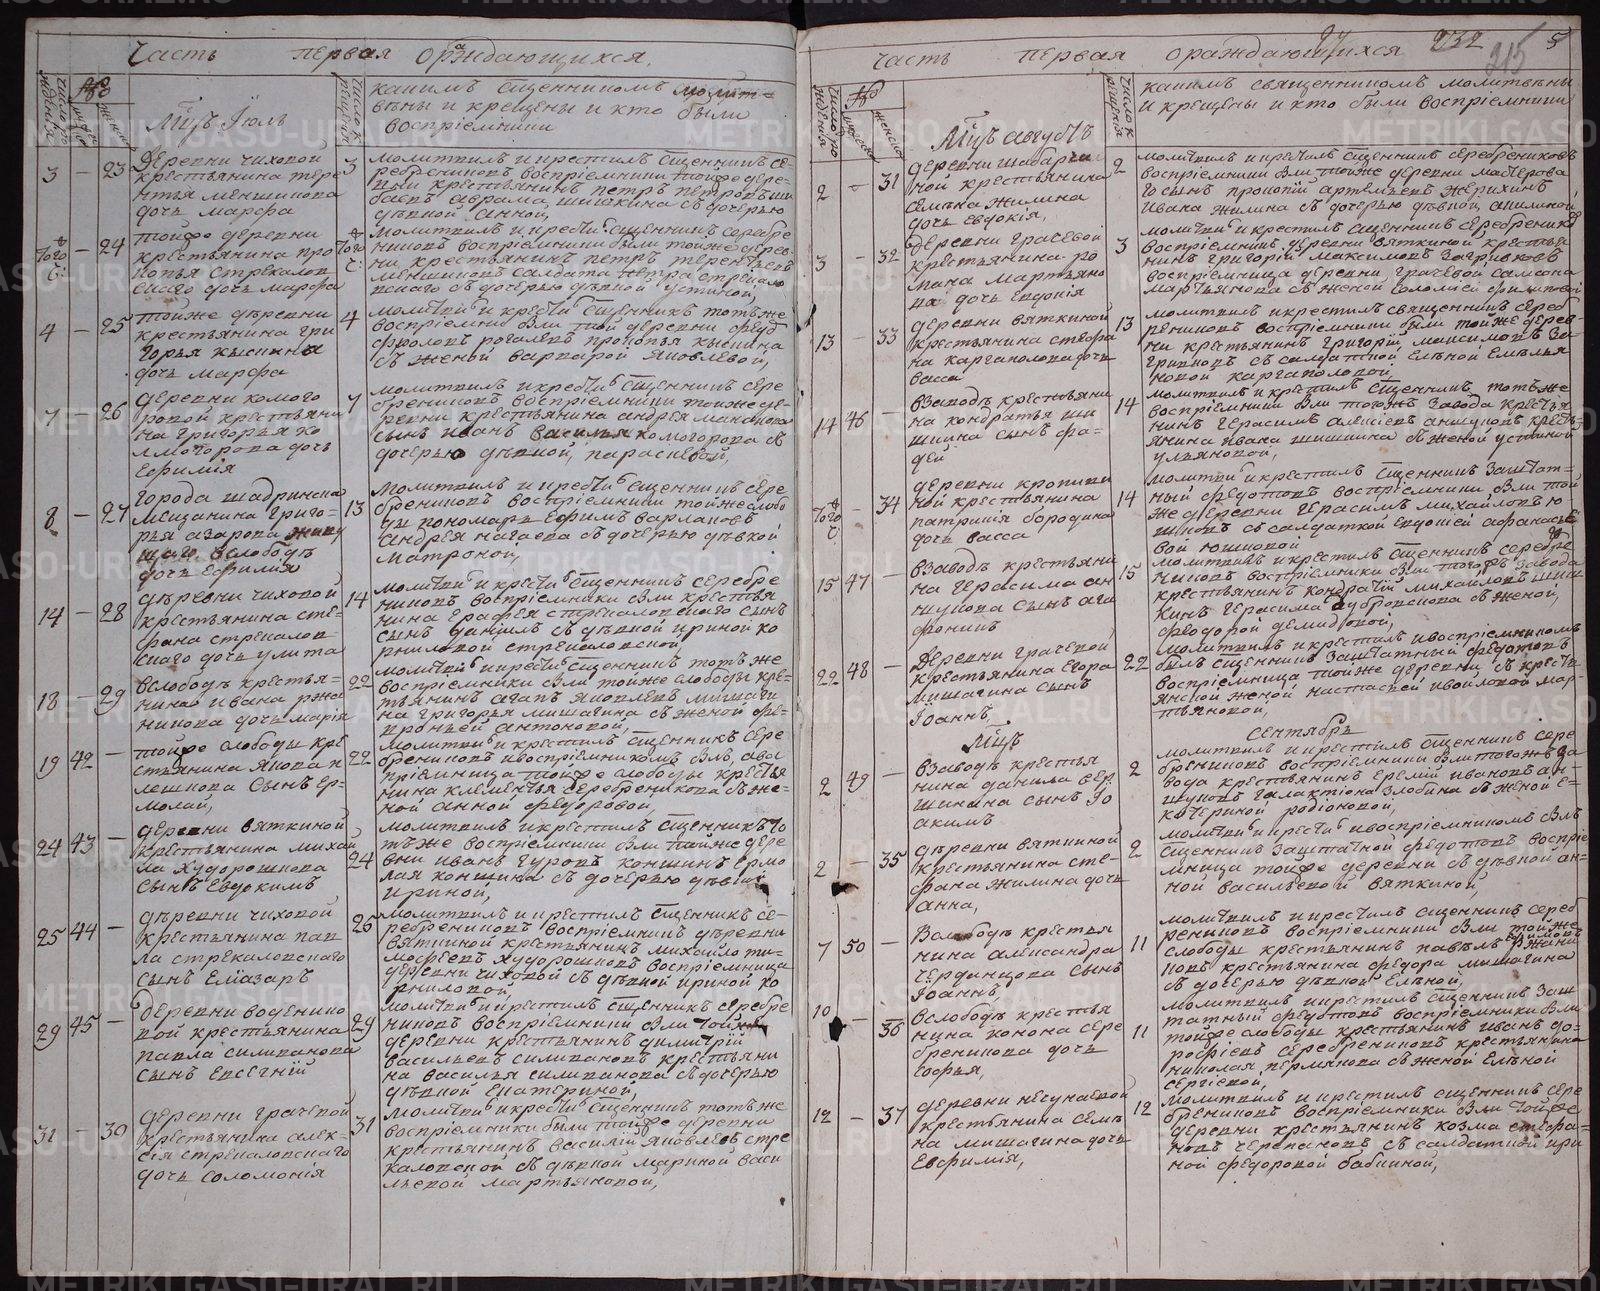 Часть первая ораждающихся.
Число рождения
№
мужеск
женск
Мцъ Іюль
Число крещенія
какимъ сщенникомъ молит=
вены и крещены и кто были
воспріемники
3 — 23
деревни чиховой
крестьянина тере
нтья меншикова
дочь марфа
3
молитвилъ и крестилъ сщенникъ се
ребрениковъ воспріемники тойже дере=
вни крестьянинъ петръ
аврама шишкина съ дочерью
дѣвкой анной,
того ч: — 24
тойже деревни
крестьянина про
копья стрекалов
скаго дочь марфа
того ч:
молитвилъ и крести сщенникъ серебре
никовъ воспріемники были тойже дерев
ни крестьянинъ петръ терентьевъ
меншиковъ солдата петра стрекало
вскаго съ дочерью дѣвкой устиной,
4 — 25
тойже деревни
крестьянина гри
горья
дочь марфа
4
молитви и крести сщенникъ тотъже
воспріемники были той деревни
фроловъ рогалевъ прокопья
съ женой варварой яковлевой,
7 — 26
деревни комого
ровой крестьяни
на григорья ко
могорова дочь
Ефимія
7
молитвилъ и крести сщенникъ сере
брениковъ воспріемники тойже де
ревни крестьянина андрея
сынъ иванъ василья комогорова съ
дочерью дѣвкой, параскевой,
8 — 27
города шадринска
мещанина григо=
рья азарова живу
щаго вслободѣ
дочь Ефимія
13
молитвилъ и крести сщенникъ сере
брениковъ воспріемники тойже слобо
ды пономарь Ефимъ варлаковъ
андрея нагаева съ дочерью дѣвкой
матроной,
14 — 28
деревни чиховой
крестьянина сте=
фана стрекалов
скаго дочь улита
14
молитви и крести сщенникъ серебре
никовъ воспріемники были крестья
нина Ерафея стрекаловскаго сынъ
сынъ даніилъ съ дѣвкой ириной ко
рниловой стрекаловской,
18 — 29
вслободѣ крестья=
нина ивана рже
никова дочь марія
22
молитви и крести сщенникъ тотъже
воспріемники были тойже слободы кре=
тьянинъ агапъ яковлевъ мишаги
на григорья мишагина съ женой фе=
вроньей антоновой,
19 42 —
тойже слободы кре
стьянина якова п
лешкова сынъ Ер=
молай,
22
молитви и крестилъ сщенникъ сере
брениковъ и воспріемникомъ былъ, а вос
пріемница тойже слободы крестья
нина клементья серебреникова съ же=
ной анной федоровой,
24 43 —
деревни вяткиной
крестьянина михай
ла худорошкова
сынъ Евдокимъ
24
молитвилъ и крестилъ сщенникъ то
тъже воспріемники были тойже дере
вни иванъ гуровъ коншинъ Ермо
лая коншина съ дочерью дѣвкой
ириной,
25 44 —
деревни чиховой
крестьянина пав
ла стрекаловскаго
сынъ Еліазаръ
26
молитвилъ и крестилъ сщенникъ се=
ребрениковъ воспріемникъ деревни
вяткиной крестьянинъ михайло ти=
мофеевъ худорошковъ воспріемница
деревни чиховой съ дѣвкой ириной ко
рниловой
29 45 —
деревни воденико
вой крестьянина
павла силиванова
сынъ Евсегній
29
молитви и крестилъ сщенникъ серебре
никовъ воспріемники были тойже
деревни крестьянинъ димитрій
васильевъ силивановъ крестьяни
на василья силиванова съ дочерью
дѣвкой Екатериной,
31 — 30
деревни грачевой
крестьянина алек=
сѣя стрекаловскаго
дочь соломонія
31
молитви и крести сщенникъ тотъже
воспріемники были тойже деревни
крестьянинъ василій яковлевъ стре
каловской съ дѣвкой мариной васи
льевой мартьяновой,
232
215
5
часть первая ораждающихся
Число рожденія
№
мужеск
женско
Мцъ августъ
Число крещенія
какимъ священникомъ молитвены
и крещены и кто были воспріемники
2 — 31
деревни
ной крестьянина
семьна жилина
дочь Евдокія,
2
молитвилъ и крестилъ сщенникъ серебрениковъ
воспріемники были тойже деревни мастерова
го сынъ прокопій артемьевъ жерихинъ
ивана жилина съ дочерью дѣвкой акилиной
3 — 32
деревни грачевой
крестьянина ро
мана мартьяно
ва дочь Евдокія
3
молитви и крестилъ сщенникъ серебрениковъ
воспріемникъ деревни вяткиной крестья
нинъ григорій максимовъ загривковъ
воспріемница деревни грачевой самсона
мартьянова съ женой соломіей филиповой
13 — 33
деревни вяткиной
крестьянина стефа
на каргаполова дочь
васса
13
молитвилъ и крестилъ священникъ сереб
рениковъ воспріемники были тойже дерев=
ни крестьянинъ григорій максимовъ за
гривковъ съ солдаткой Еленой Емелья
новой каргаполовой,
14 46 —
взаводѣ крестьяни
на кондратья ши
шкина сынъ фа=
дей
14
молитвилъ и крестилъ сщенникъ тотъже
воспріемники были тогожъ завода крестья
нинъ герасимъ алексіевъ аншуковъ кресть
янина ивана шишкина съ женой устиной
ульяновой,
того ч: — 34
деревни кропиви
ной крестьянина
патрикія бородина
дочь васса
14
молитви и крестилъ сщенникъ заштат=
ный федотовъ воспріемники были той
же деревни герасимъ михайловъ ю=
шковъ съ солдаткой Евдокіей афанасье
вой юшковой
15 47 —
взаводѣ крестьяни
на герасима ан
шукова сынъ ага
фоникъ
15
молитвилъ и крестилъ сщенникъ серебре
никовъ воспріемники были тогожъ завода
крестьянинъ кондратій михайловъ шиш
кинъ герасима дубровскова съ женой,
феодорой демидовой,
22 48 —
деревни грачевой
крестьянина Егора
мишагина сынъ
Іоаннъ,
22
молитвилъ и крестилъ и воспріемникомъ
былъ сщенникъ заштатный федотовъ
воспріемница тойже деревни съ кресть
янской женой настасьей ивойловой мар=
тьяновой,
Мцъ сентябрь
2 49 —
взаводѣ крестья
нина данила вер
шинина сынъ Іо
акимъ
2
молитвилъ и крестилъ сщенникъ сере
брениковъ воспріемники были тогожъ за
вода крестьянинъ Еремій ивановъ ан=
шуковъ галактіона злобина съ женой Е=
катериной родіоновой,
2 — 35
деревни вяткиной
крестьянина сте=
фана жилина дочь
анна,
2
молитви и крести и воспріемникомъ былъ
сщенникъ заштатной федотовъ воспріе
мница тойже деревни съ дѣвкой ан=
ной васильевой вяткиной,
7 50 —
вслободѣ крестья
нина александра
чердынцова сынъ
Іоаннъ,
11
молитвилъ и крестилъ сщенникъ сереб
рениковъ воспріемники были тойже
слободы крестьянинъ павелъ
ковъ крестьянина федора мишагина
съ дочерью дѣвкой Еленой,
10 — 36
вслободѣ крестья
нина конона сере
бреникова дочь
софья,
11
молитвилъ и крестилъ сщенникъ заш
татный федотовъ воспріемники были
тойже слободы крестьянинъ иванъ до=
рофіевъ серебрениковъ крестьянина
николая пермякова съ женой Еленой
сергіевой,
12 — 37
деревни несунаевой
крестьянина семь
на мишагина дочь
Евфимія,
12
молитвилъ и крестилъ сщенникъ сере
брениковъ воспріемники были тойже
деревни крестьянинъ козма стефа=
новъ черепановъ съ солдаткой ири
ной федоровой бабкиной,
METRIKI.GASO-URAL.RU